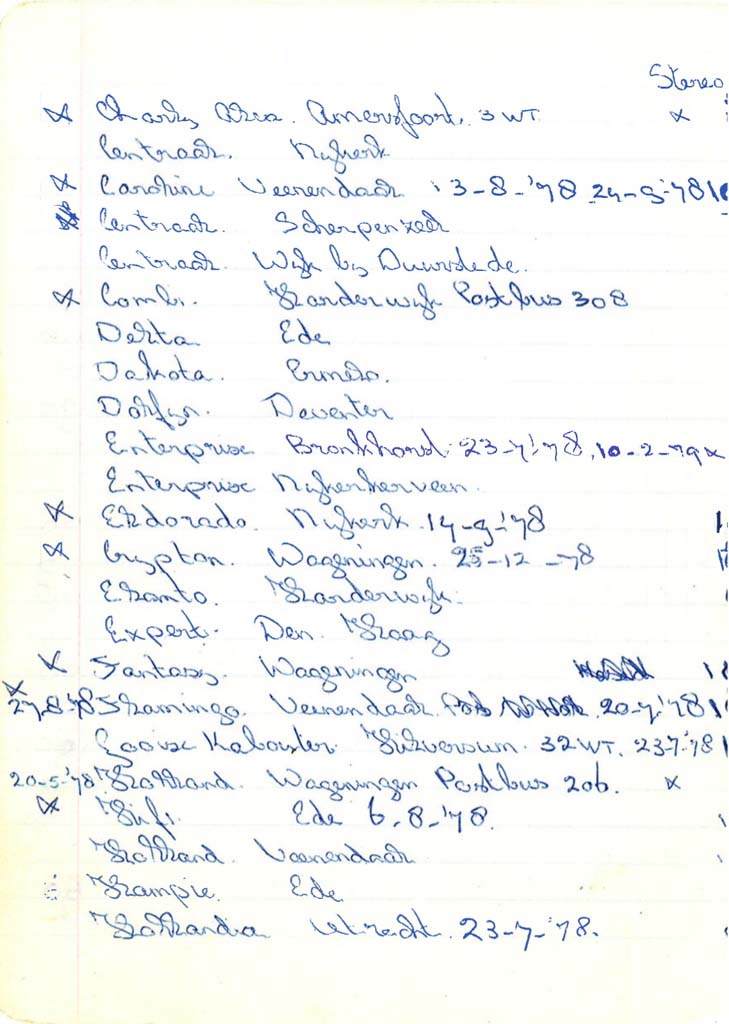 Stereo
x Charly Area. Amersfoort. 3 WT. x
Centraal. Nijkerk
x Caroline Veenendaal 13-8-'78 24-9-'78
Centraal. Scherpenzeel
Centraal. Wijk bij Duurstede.
x Combi. Harderwijk Postbus 308
Delta Ede
Dakota. Ermelo.
Dolfijn. Deventer
Enterprise Bronkhorst 23-7-'78, 10-2-79 x
Enterprise Nijkerkerveen.
x Eldorado. Nijkerk. 14-9-'78
x Crypton. Wageningen. 25-12-78
Ekamto. Harderwijk.
Expert. Den Haag
x Fantasy. Wageningen
x
27-8-'78 Flamingo. Veenendaal. Post 20-7-'78
Gooise Kabouter. Hilversum. 32 WT. 23-7-'78
20-5-'78 Holland. Wageningen Postbus 206. x
x Hifi. Ede 6-8-'78.
Holland. Veenendaal
Hampie. Ede
Hollandia Utrecht. 23-7-'78.